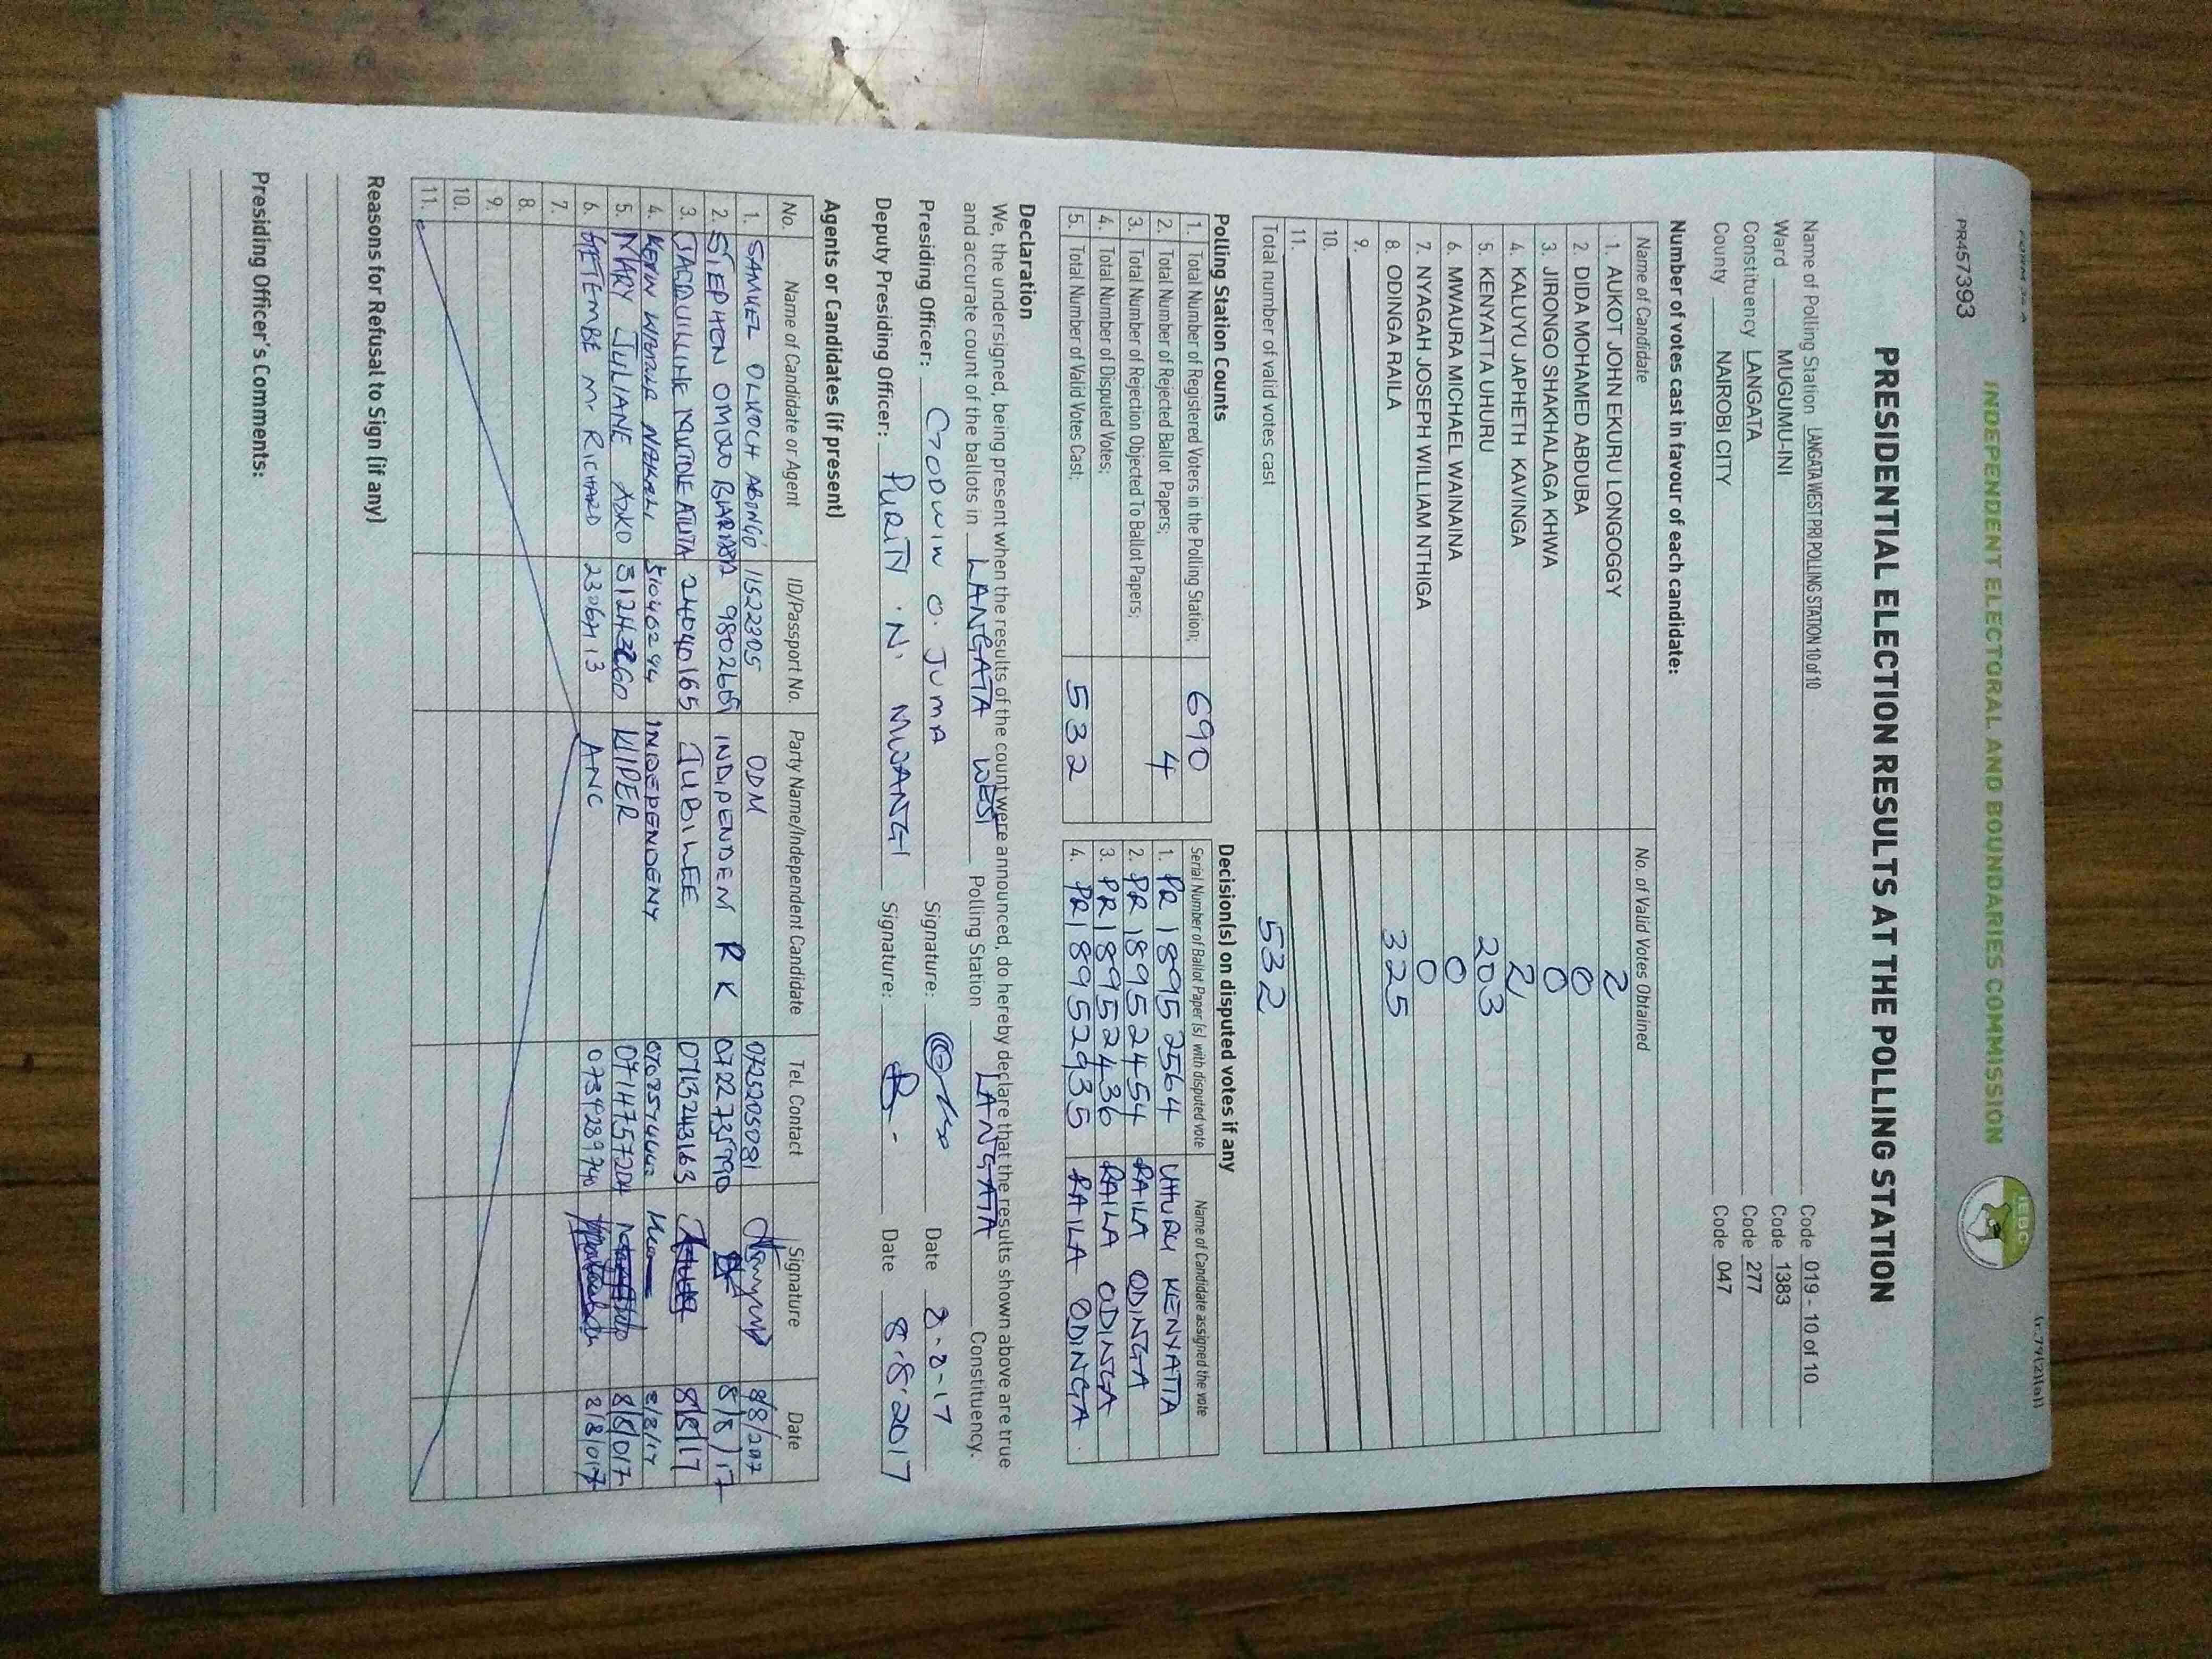 INDEPENDENT ELECTORAL AND BOUNDARIES COMMISSION
IEBC
PR457393
PRESIDENTIAL ELECTION RESULTS AT THE POLLING STATION
Name of Polling Station LANGATA WEST PRI POLLING STATION 10 of 10 Code 019 - 10 of 10
Ward MUGUMU-INI Code 1383
Constituency LANGATA Code 277
County NAIROBI CITY Code 047
Number of votes cast in favour of each candidate:
Name of Candidate No. of Valid Votes Obtained
1. AUKOT JOHN EKURU LONGOGGY 2
2. DIDA MOHAMED ABDUBA 0
3. JIRONGO SHAKHALAGA KHWA 0
4. KALUYU JAPHETH KAVINGA 2
5. KENYATTA UHURU 203
6. MWAURA MICHAEL WAINAINA 0
7. NYAGAH JOSEPH WILLIAM NTHIGA 0
8. ODINGA RAILA 325
9.
10.
11.
Total number of valid votes cast 532
Polling Station Counts
1. Total Number of Registered Voters in the Polling Station; 690
2. Total Number of Rejected Ballot Papers; 4
3. Total Number of Rejection Objected To Ballot Papers;
4. Total Number of Disputed Votes;
5. Total Number of Valid Votes Cast; 532
Decision(s) on disputed votes if any
Serial Number of Ballot Paper (s) with disputed vote Name of Candidate assigned the vote
1. PR 18952564 UHURU KENYATTA
2. PR 18952454 RAILA ODINGA
3. PR 18952436 RAILA ODINGA
4. PR 18952935 RAILA ODINGA
Declaration
We, the undersigned, being present when the results of the count were announced, do hereby declare that the results shown above are true
and accurate count of the ballots in LANGATA WEST Polling Station LANGATA Constituency.
Presiding Officer: GODWIN O. JUMA Signature: Date 8-8-17
Deputy Presiding Officer: PURITY . N. MWANGI Signature: Date 8.8.2017
Agents or Candidates (if present)
No. Name of Candidate or Agent ID/Passport No. Party Name/Independent Candidate Tel. Contact Signature Date
1. SAMUEL OLKOCH ABONGO 11522305 ODM 0725205081 8/8/2017
2. STEPHEN OMOLO INDIPENDEM R K 8/8/17
3. JACQUILLINE 24040165 JUBILEE 0713243163 8/8/17
4. KEVIN INDEPENDENT 8/8/17
5. MARY JULIANE WIPER 8/8/017
6. M. RICHARD ANC 0739289740
7.
8.
9.
10.
11.
Reasons for Refusal to Sign (if any)
Presiding Officer's Comments: